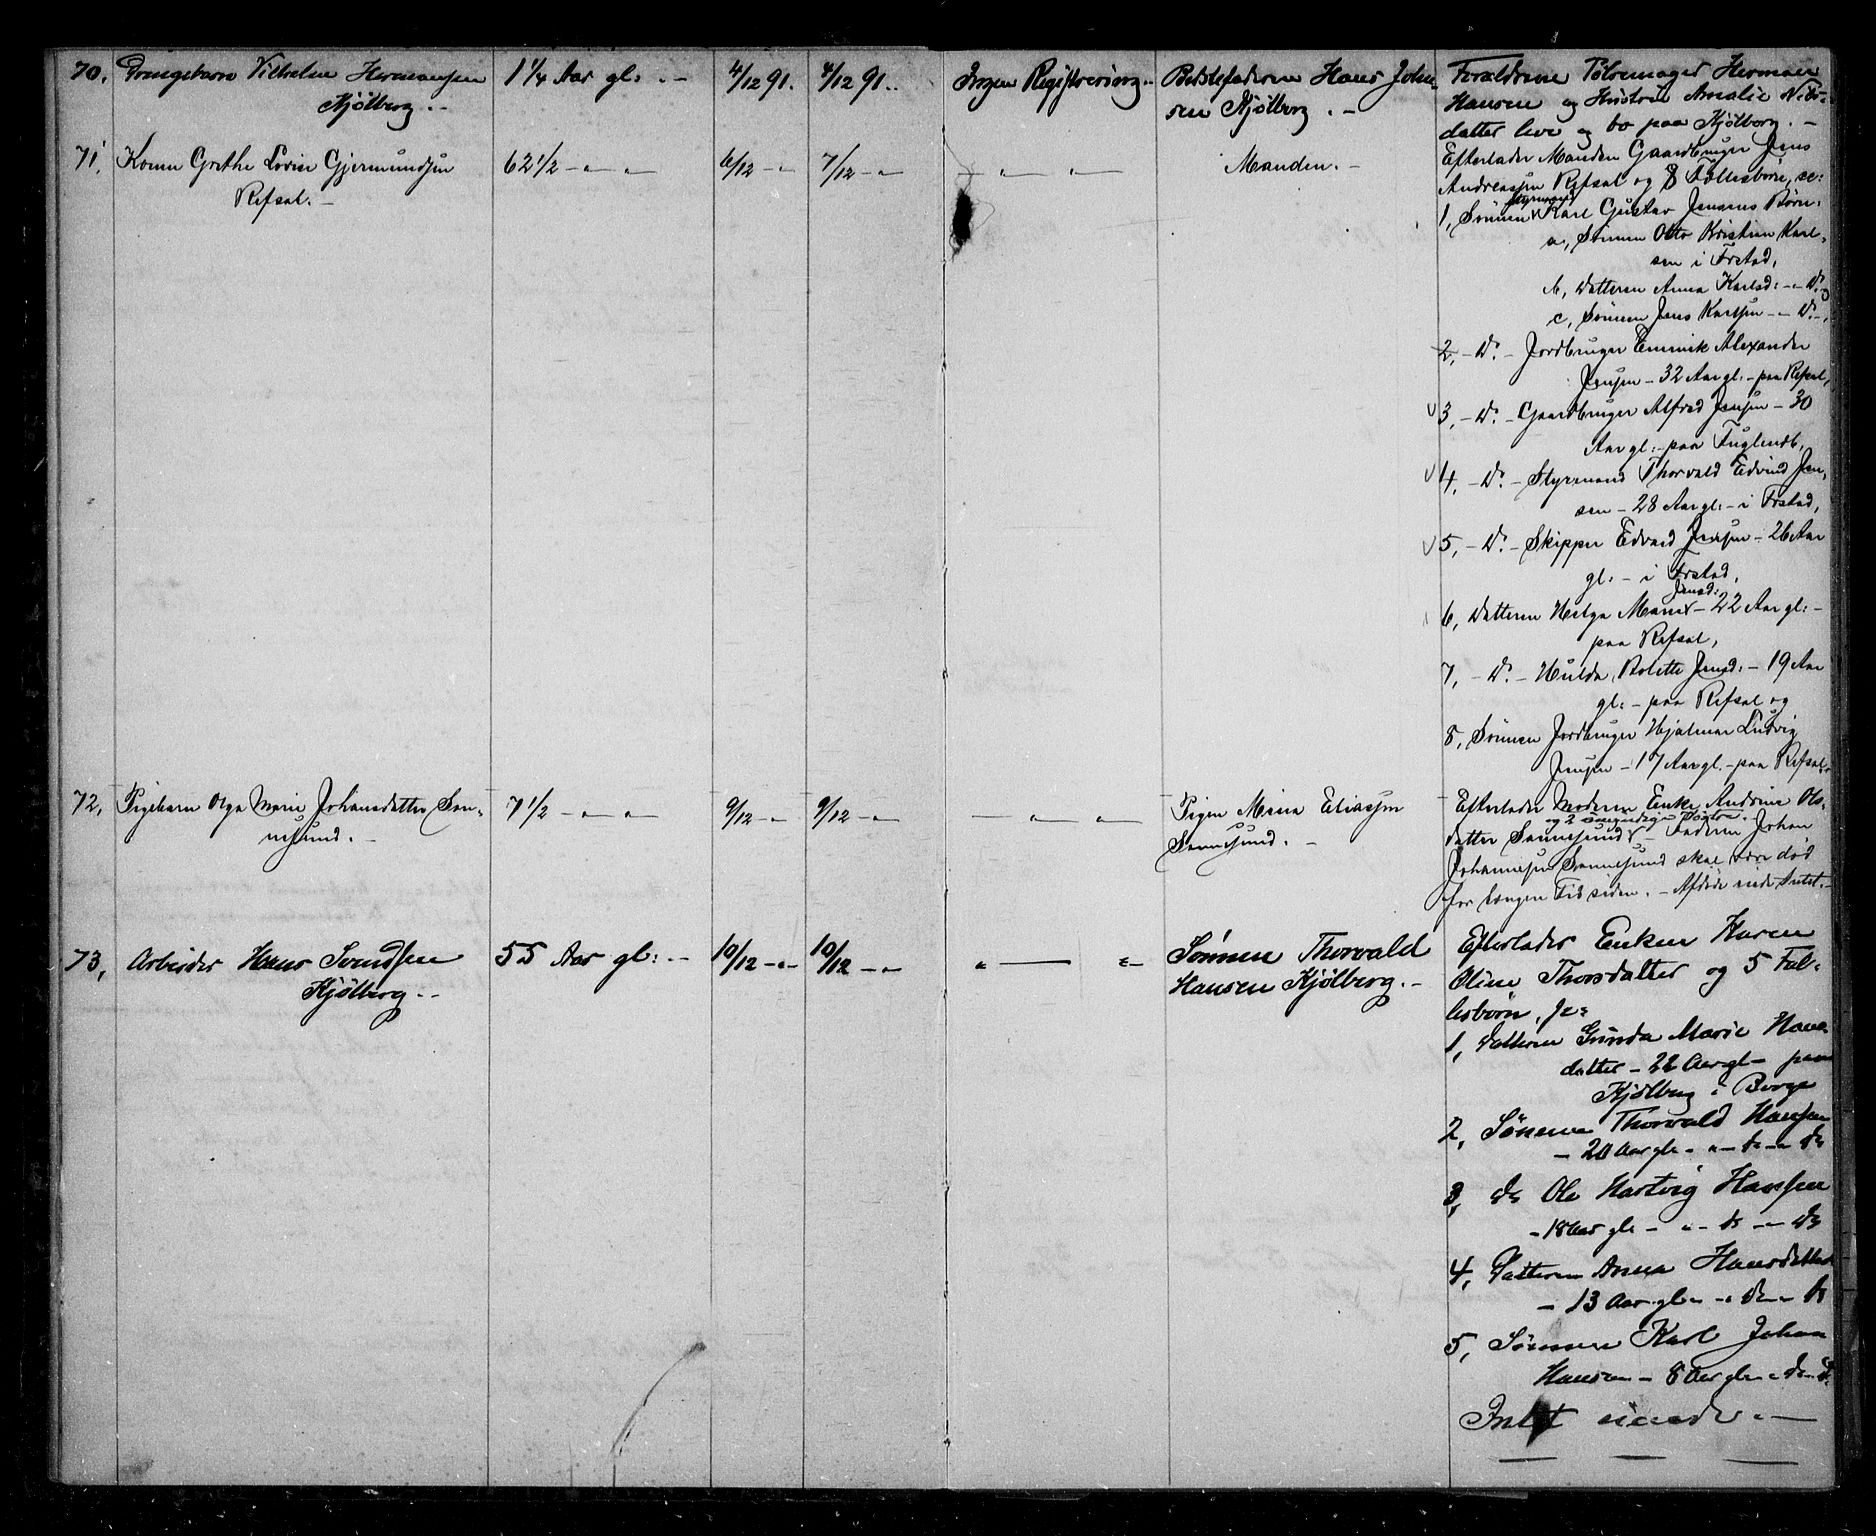 70, Drengebarn Vilhelm Hermansen
Kjølberg. –
1 1/4 Aar gl: . –
4/12 91.
4/12 91. .
Ingen Registrering. .
Bedstefaderen Hans Johan-
sen Kjølberg . –
Forældrene Pølsemager Herman
Hansen og Hustru Amalie Nils-
datter leve og bo paa Kjølberg. –
71, Konen Grethe Lovise Gjermundsen
Refsal. –
62 1/2 – „ – „
6/12 – „
7/12 – „
– „ – „ –
Manden. –
Efterlader Manden Gaardbruger Jens
Andreassen Refsal og 8 Fællesbørn, sc:
styrmand
1, Sønnen Karl Gustav Jensens Børn:
a, Sønnen Otto Kristian Karl-
sen i Frstad,
b, Datteren Anna Karlsd: – „ – Do. og
c, Sønnen Jens Karlsen – „ – Do. –,
2, – Do. – Jordbruger Emmik Alexander
Jensen – 32 Aar gl: – paa Refsal,
3, – Do. – Gaardbruger Alfred Jensen – 30
Aar gl: – paa Fuglendb,
4, – Do. – Styrmand Thorvald Edvind Jen-
sen – 28 Aar gl: – i Frstad,
5, – Do. – Skipper Edvard Jensen – 26 Aar
gl: – i Frstad,
Jensd:
6, Datteren Helga Marie – 22 Aar gl: –
paa Refsal,
7, – Do. – Hulda Bolette Jensd: – 19 Aar
gl: – paa Refsal og
8, Sønnen Jordbruger Hjalmar Ludvig
Jensen – 17 Aar gl. – paa Refsal.
72, Pigebarn Olga Marie Johansdatter San-
nesund. –
7 1/2 – „ – „ –
9/12 – „
9/12 – „
– „ – „ –
Pigen Mina Eliassen
Sannesund. –
Efterlader Moderen Enke Andrine Ols-
og 2 umyndige Søstre.
datter Sannesund – Faderen Johan
Johannesen Sannesund skal være død
for længere Tid siden. – Afdøde eiede Intet. –
73, Arbeider Hans Svendsen
Kjølberg. –
55 Aar gl: . –
10/12 – „
10/12 – „
„ – „ –
Sønnen Thorvald
Hansen Kjølberg. –
Efterlader Enken Karen
Oline Thorsdatter og 5 Fæl-
lesbørn, sc:
1, Datteren Gunda Marie Hans-
datter – 22 Aar gl – paa
Kjølberg i Borge
2, Sønnen Thorvald Hansen
– 20 Aar gl – „ – do – „ do
3, do Ole Hartvig Hansen
– 18 Aar gl – „ – do – „ do
4, Datteren Anna Hansdatter
– 13 Aar gl – „ do – „ do
5, Sønnen Karl Johan
Hansen – 8 Aar gl – „ do – do
Intet eiende. –